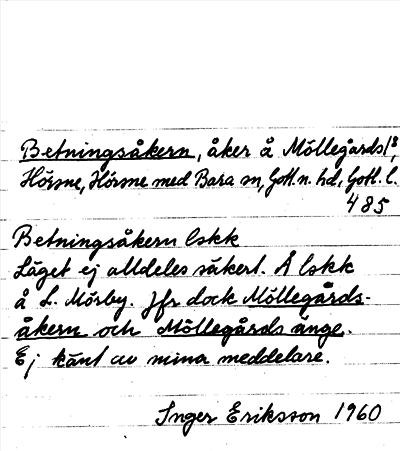 Betningsåkern, åker å Möllegårds 1/8,
Hörsne, Hörsne med Bara sn, Gotl. n. hd, Gotl. l.
485
Betningsåkern lskk
Läget ej alldeles säkert. Å lskk
å L. Mörby. Jfr dock Möllegårds-
åkern och Möllegårds änge.
Ej känt av mina meddelare.
Inger Eriksson 1960